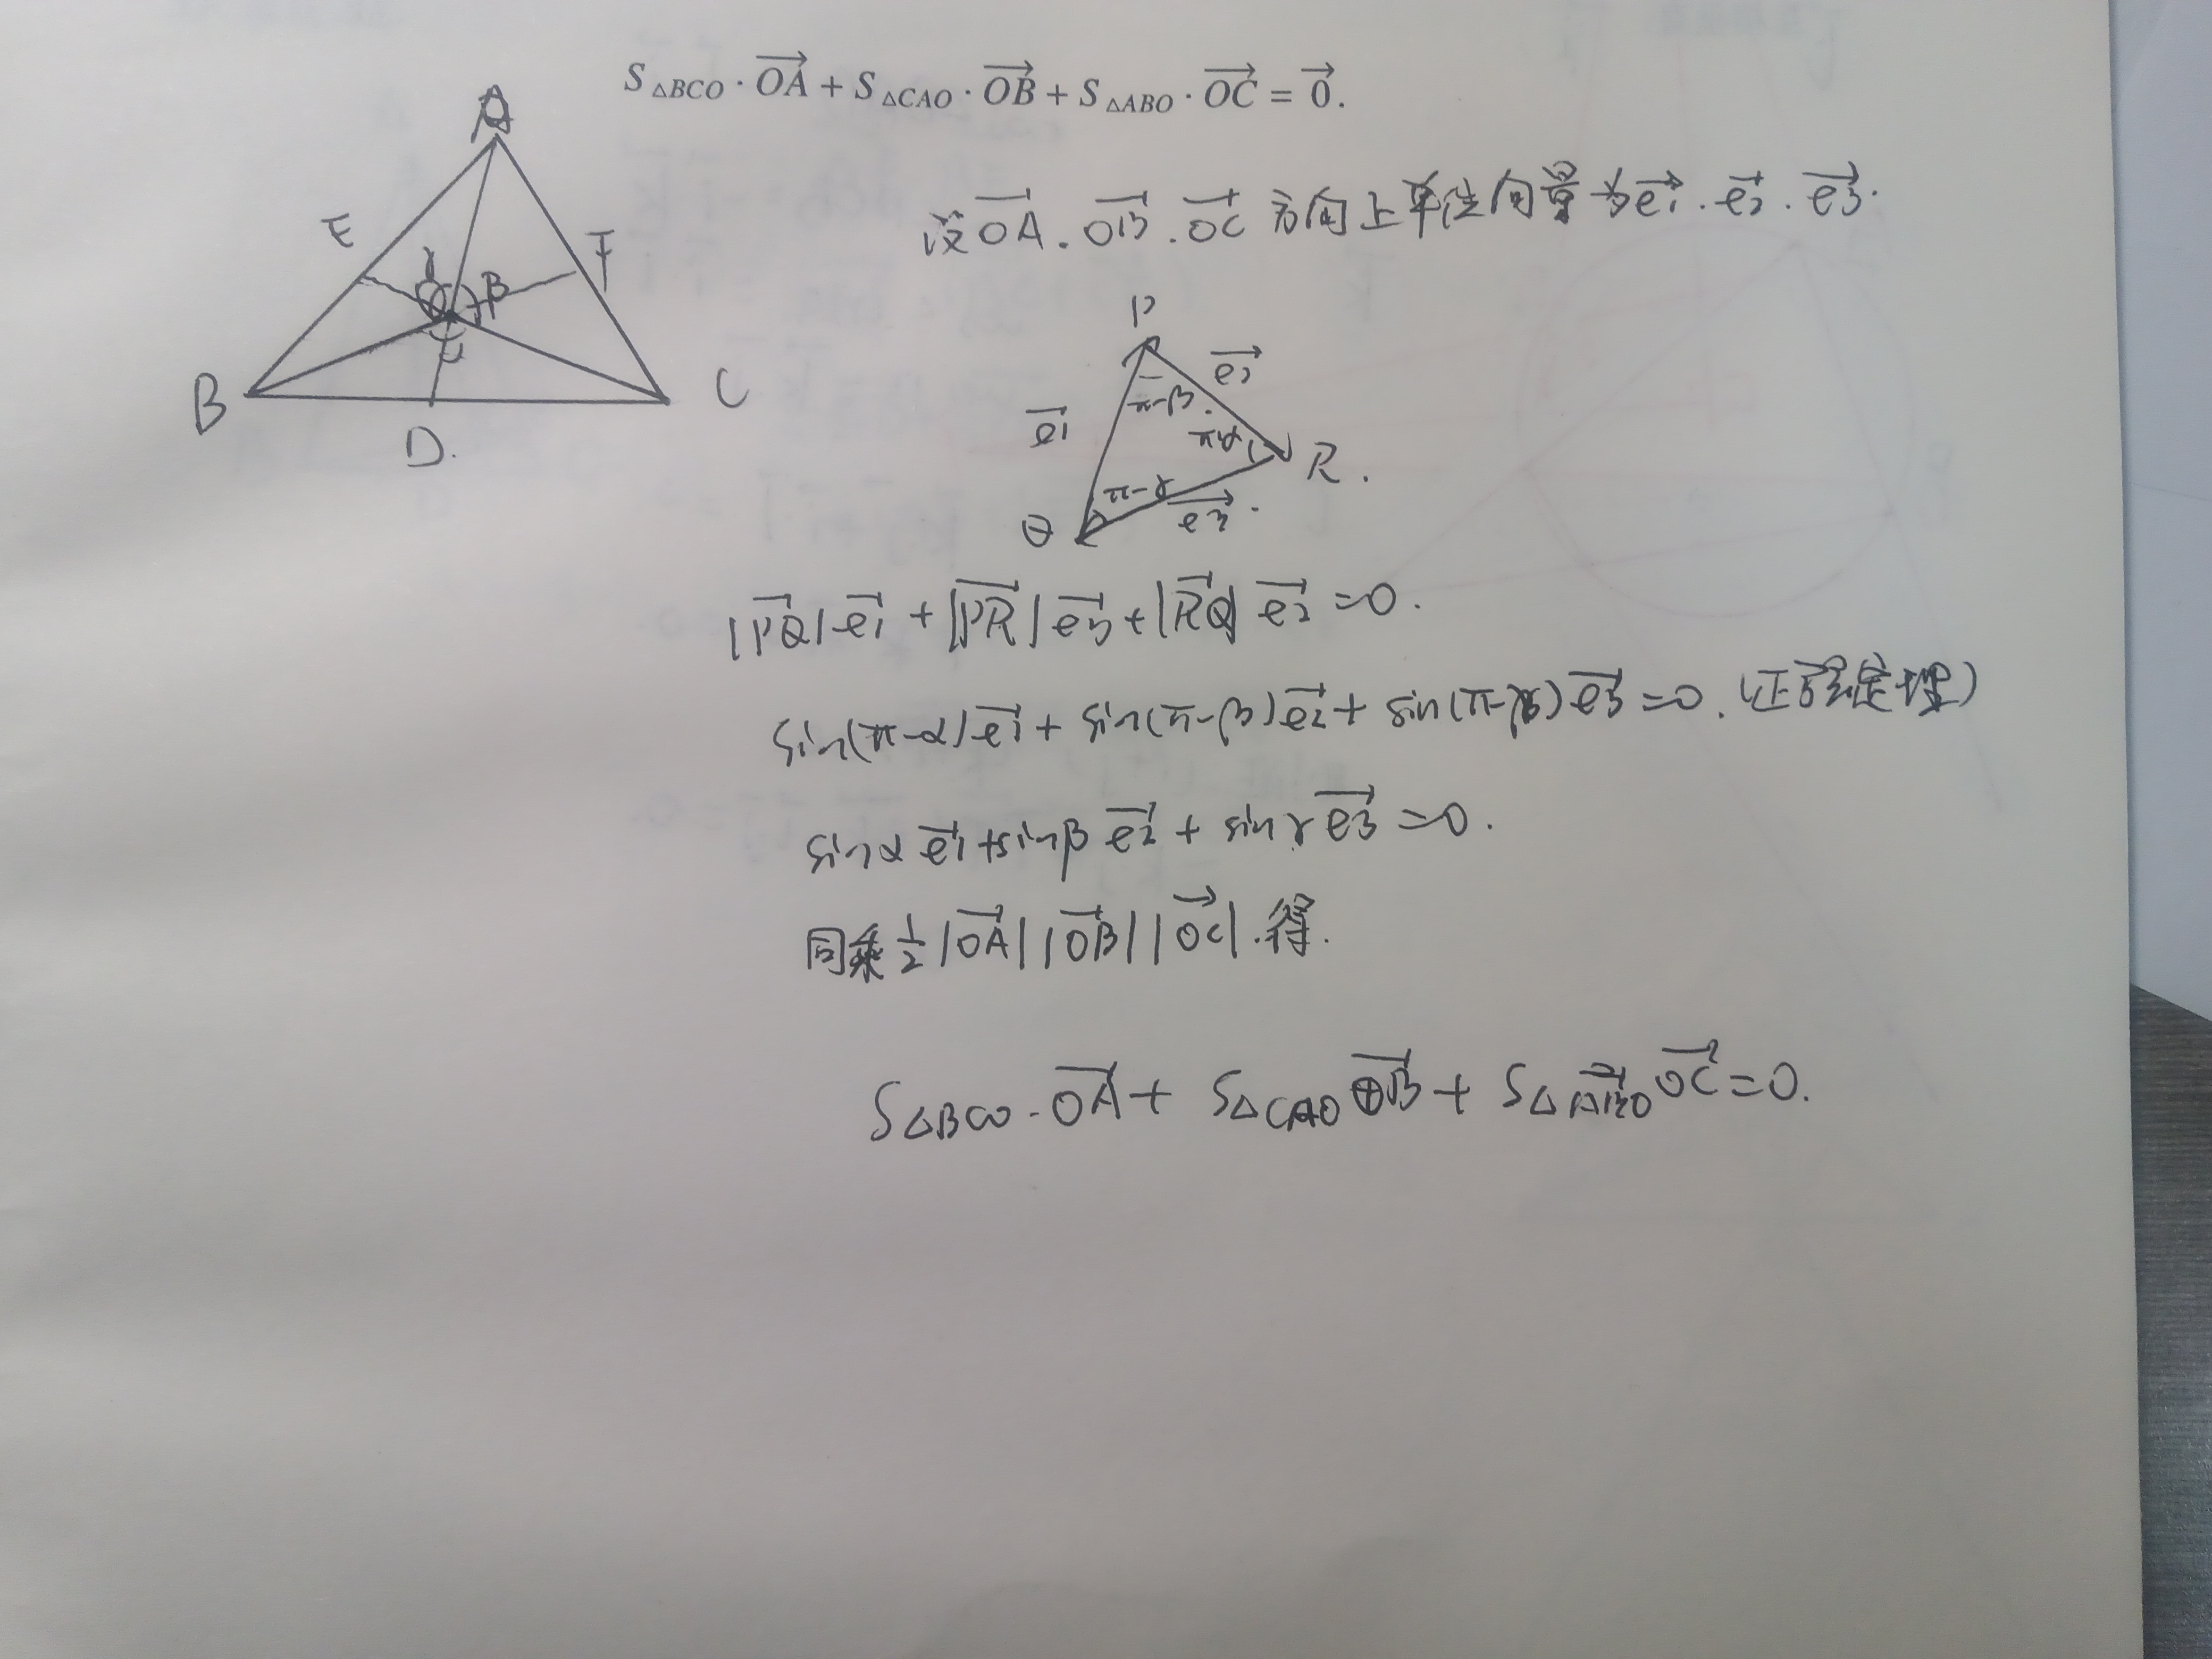 S△BCO · OA→ + S△CAO · OB→ + S△ABO · OC→ = 0→.
A
E
F
γ
O
β
α
B
C
D.
设OA→. OB→. OC→ 方向上单位向量为e1→. e2→. e3→.
P
e1→
e2→
π-β.
π-α
R.
π-γ
e3→.
Q
|PQ→|e1→ + |PR→|e3→ + |RQ→|e2→ =0.
sin(π-α)e1→ + sin(π-β)e2→ + sin(π-γ)e3→ =0. (正弦定理)
sinα e1→ + sinβ e2→ + sinγ e3→ =0.
同乘 1/2 |OA→| |OB→| |OC→|. 得.
S△BCO · OA→ + S△CAO OB→ + S△ABO OC→ =0.